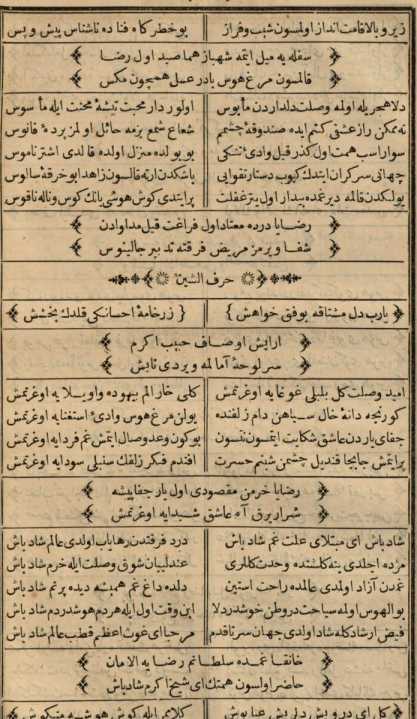 زير و بالا اقامت انداز اولمسون شيب و فراز بو خطر كاه فناده ناشناس پيش و پس
سفله يه ميل ايتمه شهباز هما صيد اول رضا
قالمسون مرغ هوس بادر عسل همچون مكس
دلا هجريله اولمه وصلت دلداردن مأيوس اولور دار محبت تيشهٔ محنت ايله مأسوس
نه ممكن راز عشقى كتم ايده صندوقهٔ چشمم شعاع شمع بزمه حائل اولمز پردهٔ فانوس
سوار اسب همت اول كذر قيل وادئ تنكى بو يولده منزل اولده قالدى اشتر ناموس
جهانى سركران ايتدك كيوب دستار تقوايى باشكدن ارته قالسون زاهدا بو خرقهٔ سالوس
يولكدن قالمه ديرغمده بيدار اول يتر غفلت پر ايتدى كوش هوشى بانك كوس و ناله ناقوس
رضايا درده معتاد اول فراغت قيل مداوادن
شفا ويرمز مريض فرقته تدبير جالينوس
حرف الشين
يارب دل مشتاقه بو فق خواهش زرخامهٔ احسانكى قلدك بخشش
ارايش اوصاف حبيب اكرم
سرلوحهٔ آمالمه ويردى تابش
اميد وصلت كل بلبلى غوغايه اوغرتمش كلى خار الم بيهوده واويلايه اوغرتمش
كورنجه دانهٔ خال سياهن دام زلفنده يولن مرغ هوس وادئ استغنايه اوغرتمش
جفاى ياردن عاشق شكايت ايتمسون نتسون بوكون وعد وصال ايتمش غم فردايه اوغرتمش
پر ايتمش جابجا قنديل چشمن شبنم حسرت افندم فكر زلفك سنبلى سودايه اوغرتمش
رضايا خرمن مقصودى اول يار جفا پيشه
شرار برق آه عاشق شيدايه اوغرتمش
شاد باش اى مبتلاى علت غم شاد باش درد فرقتدن رهاياب اولدى عالم شاد باش
مژده اچلدى ينه كلشنده وحدت كللرى عندليبان شوق وصلت ايله خرم شاد باش
غمدن آزاد اولدى عالمده راحت استين دلده داغ غم هميشه ديده پر نم شاد باش
بو الهوس اولمه سياحت در وطن خوشدر دلا اين وقت اول ايله هر دم هوش در دم شاد باش
فيض ارشادكله شاد اولدى جهان سر تا قدم مرحبا اى غوث اعظم قطب عالم شاد باش
خانقا غمده سلطانم رضايه الامان
حاضر اولسون همتك اى شيخ اكرم شاد باش